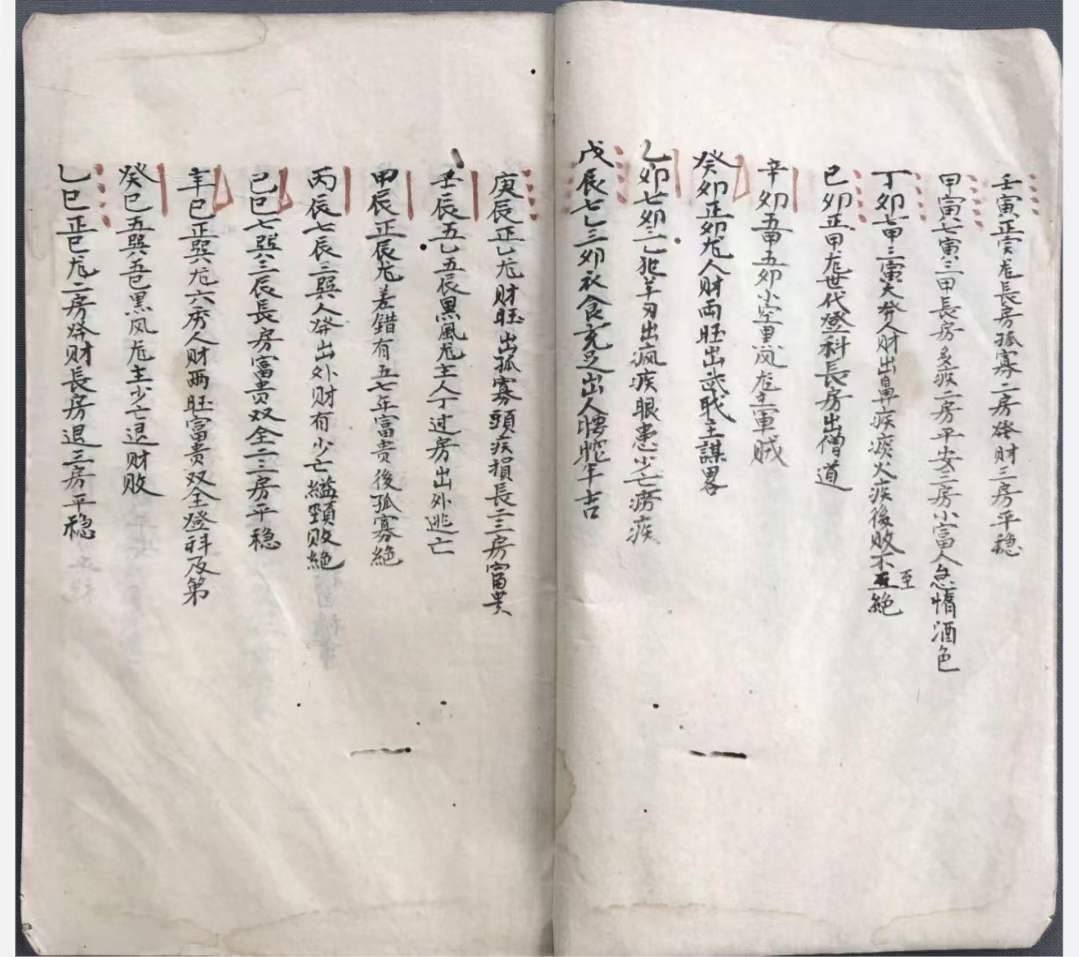 壬寅正寅龙長房孤寡二房發财三房平穩
甲寅七寅三甲長房多疾二房平安三房小富人怠惰酒色
丁卯七甲三寅大發人财出鼻疾痰火疾後敗不至絶
己卯正甲龙世代登科長房出僧道
辛卯五甲五卯小空黑风龙主軍賊
癸卯正卯龙人财両旺出武职主謀畧
乙卯七卯三乙犯羊刃出疯疾眼患少亡痨疾
戊辰七乙三卯衣食充足出人腰駝半吉
庚辰正乙龙财旺出孤寡頭疾損長二三房富貴
壬辰五乙五辰黑風龙主人丁过房出外逃亡
甲辰正辰龙差錯有五七年富貴後孤寡絶
丙辰七辰三巽人發出外财有少亡縊頸败絶
己巳七巽三辰長房富贵双全二三房平穩
辛巳正巽龙六秀人财两旺富贵双全登科及第
癸巳五巽五巳黑风龙主少亡退财敗
乙巳正巳龙二房發财長房退三房平穩